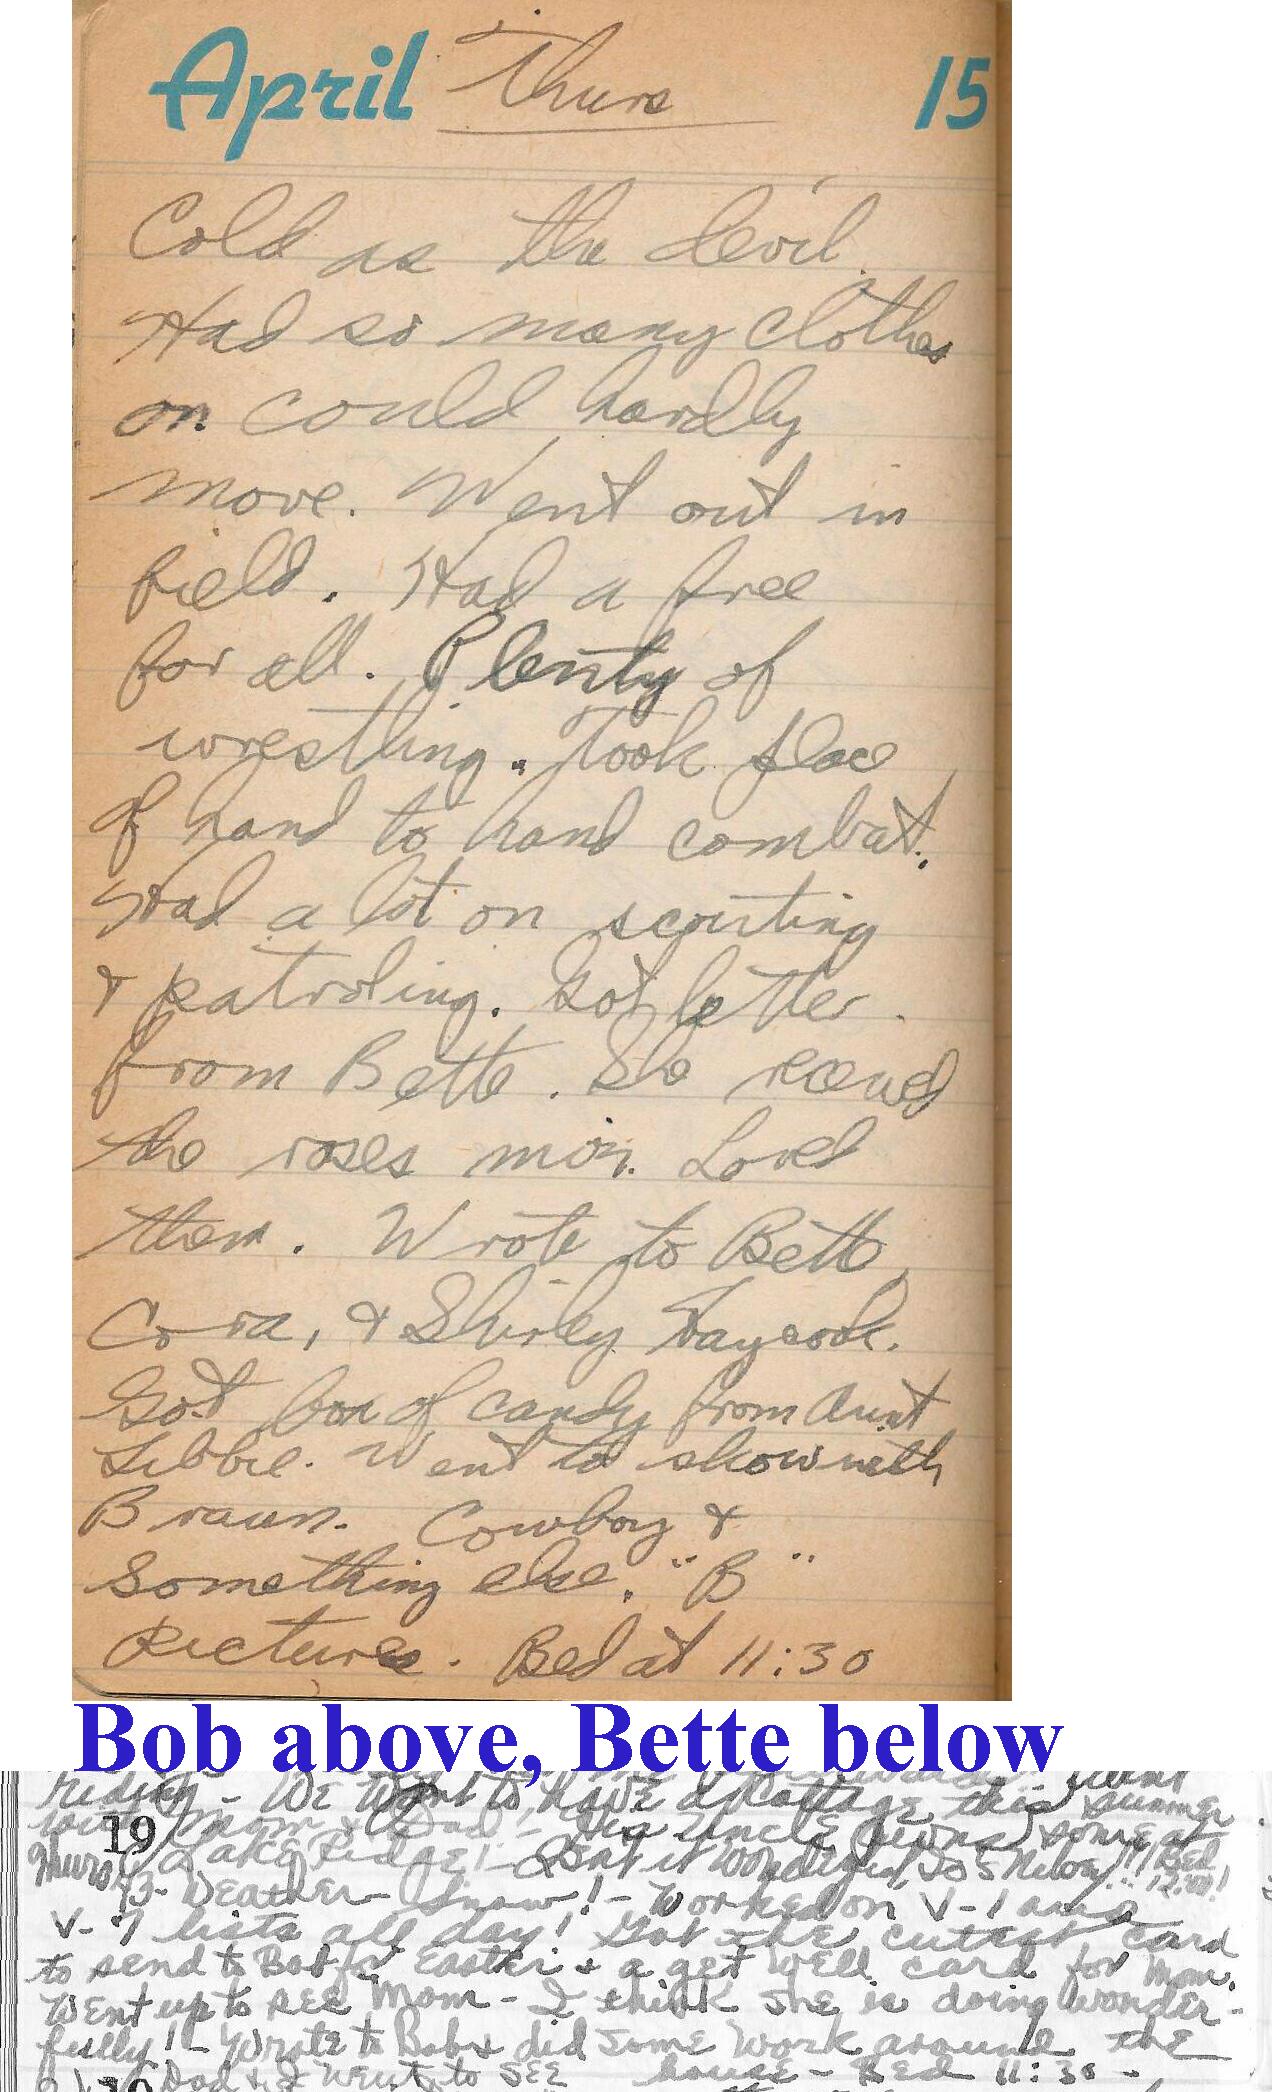 April Thurs 15
Cold as the devil.
Had so many clothes
on could hardly
move. Went out in
field. Had a free
for all. Plenty of
wrestling. Took place
of hand to hand combat.
Had a lot on scouting
& patroling. Got letter
from Bette. She received
the roses mon. Loved
them. Wrote to Bette,
Cora, & Shirley Haycook.
Got box of candy from Aunt
Libbie. Went to show with
Braun. Cowboy &
something else. "B"
pictures. Bed at 11:30
Bob above, Bette below
riding - We want to have a cottage this summer
19 Mom & Dad! - Uncle someat
Thurs Lake Ridge! - Isn't it wonderful, Bed
43 - Weather - Snow! - Worked on V-1 and
V-7 lists all day! Got the cutest card
to send to Bob for Easter & a get well card for Mom.
Went up to see Mom - I think she is doing wonder-
fully! - Wrote to Bob & did some work around the
Dad & I went to see house - Bed 11:30 -